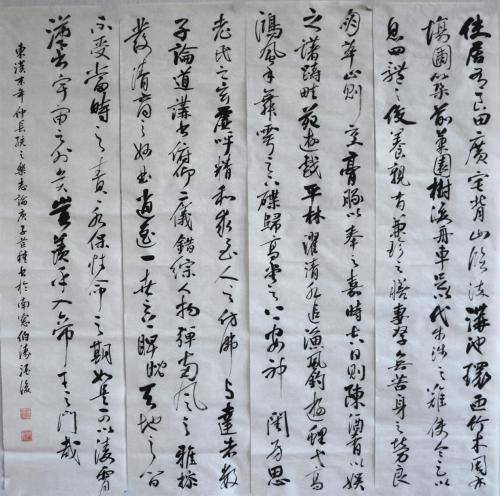 使居有良田廣宅背山臨流溝池環匝竹木周布
場圃築前菓園樹後舟車足以代步涉之難使令足以
息四體之役養親有兼珍之膳妻孥無苦身之勞良
朋萃止則烹羔豚以奉之嘉時吉日則陳酒肴以娱
之躊躇畦苑遊戲平林濯清水追涼風釣游鯉弋高
鴻風於舞雩之下詠歸高堂之上安神閨房思
老氏之玄虛呼吸精和求至人之仿佛與達者數
子論道講書俯仰二儀錯綜人物彈南風之雅操
發清商之妙曲逍遙一世之上睥睨天地之間
不受當時之責永保性命之期如是可以凌霄
漢出宇宙之外矣豈羨乎入帝王之門哉
東漢末年仲長統之樂志論庚子芒種書於南窗伯濤